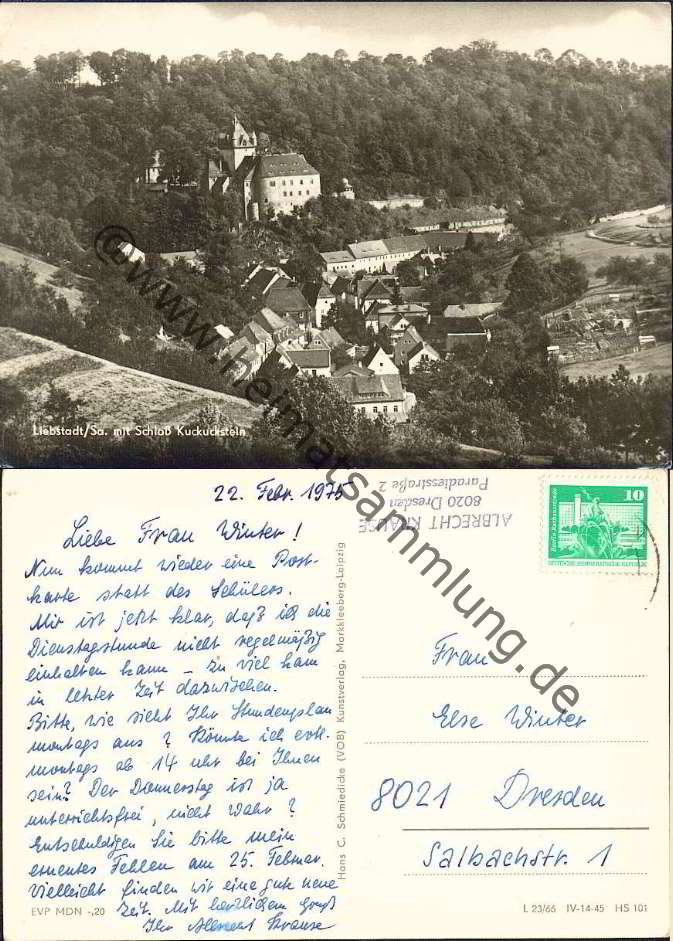 Liebstadt/Sa. mit Schloß Kuckuckstein
© www.heimatsammlung.de
22. Febr. 1975
Liebe Frau Winter!
Nun kommt wieder eine Post-
karte statt des Schülers.
Mir ist jetzt klar, daß ich die
Dienstagstunde nicht regelmäßig
einhalten kann – zu viel kam
in letzter Zeit dazwischen.
Bitte, wie sieht Ihr Stundenplan
montags aus? Könnte ich evtl.
montags ab 14 uhr bei Ihnen
sein? Der Donnerstag ist ja
unterrichtsfrei, nicht wahr?
Entschuldigen Sie bitte mein
erneutes Fehlen am 25. Februar.
Vielleicht finden wir eine gute neue
Zeit. Mit herzlichem Gruß
Ihr Albrecht Krause
EVP MDN -,20
Hans C. Schmiedicke (VOB) Kunstverlag, Markkleeberg-Leipzig
ALBRECHT KRAUSE
8020 Dresden
Paradiesstraße 2
10
Berlin, Rathausstraße
DEUTSCHE DEMOKRATISCHE REPUBLIK
Frau
Else Winter
8021 Dresden
Salbachstr. 1
L 23/66 IV-14-45 HS 101